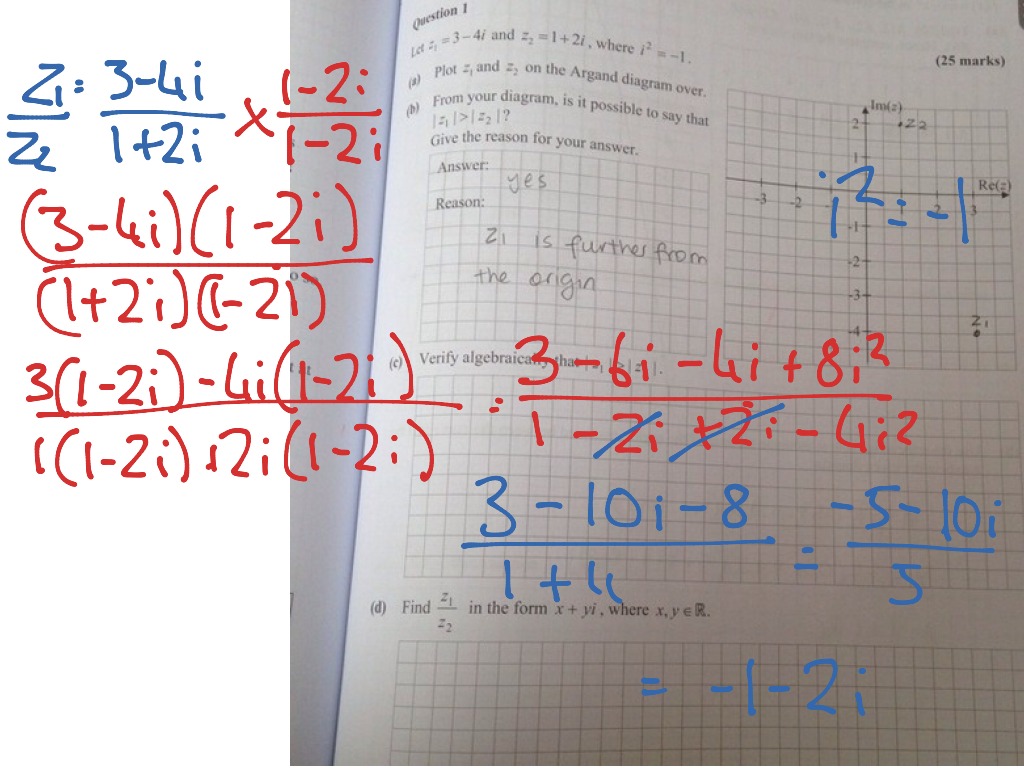 Question 1
(25 marks)
Let z₁ = 3 – 4i and z₂ = 1 + 2i, where i² = –1.
(a) Plot z₁ and z₂ on the Argand diagram over.
(b) From your diagram, is it possible to say that
|z₁| > |z₂| ?
Give the reason for your answer.
Answer: yes
Reason:
z₁ is further from
the origin
Im(z)
2
z2
1
Re(z)
-3 -2 2 3
-1
-2
-3
-4
z₁
i² = -1
(c) Verify algebraically that |z₁| > |z₂|.
(d) Find z₁/z₂ in the form x + yi, where x, y ∈ ℝ.
z₁/z₂ = (3-4i)/(1+2i) × (1-2i)/(1-2i)
(3-4i)(1-2i)
(1+2i)(1-2i)
3(1-2i) - 4i(1-2i)
1(1-2i) + 2i(1-2i)
= (3 - 6i - 4i + 8i²)/(1 - 2i + 2i - 4i²)
(3 - 10i - 8)/(1 + 4) = (-5 - 10i)/5
= -1 - 2i